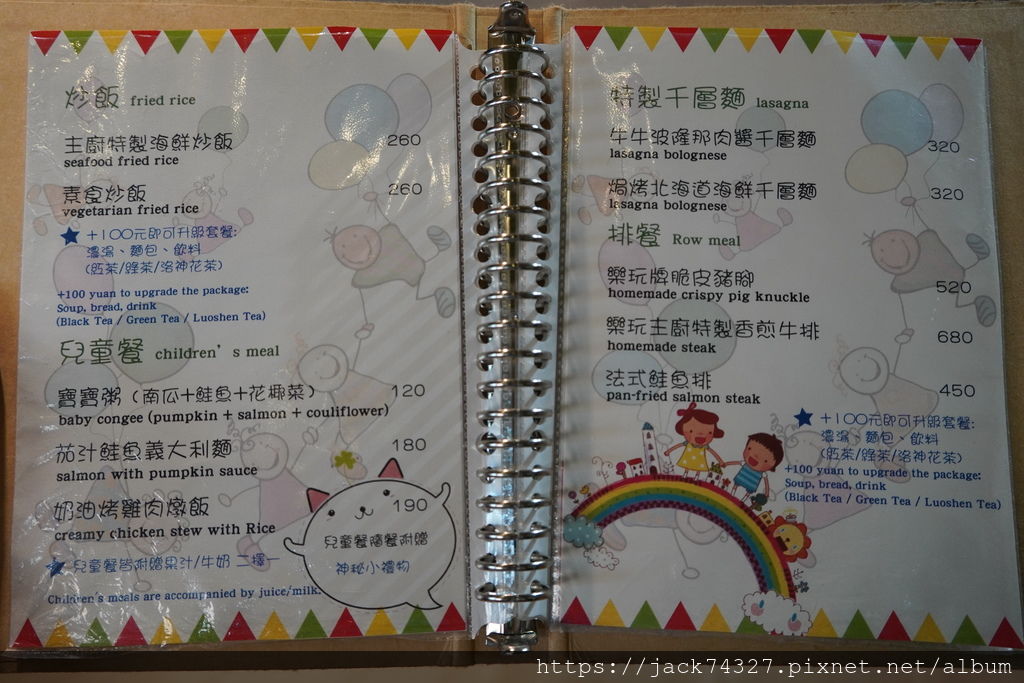 炒飯 fried rice
主廚特製海鮮炒飯 260
seafood fried rice
素食炒飯 260
vegetarian fried rice
★ +100元即可升級套餐:
濃湯、麵包、飲料
(紅茶/綠茶/洛神花茶)
+100 yuan to upgrade the package:
Soup, bread, drink
(Black Tea / Green Tea / Luoshen Tea)
兒童餐 children's meal
寶寶粥 (南瓜+鮭魚+花椰菜) 120
baby congee (pumpkin + salmon + couliflower)
茄汁鮭魚義大利麵 180
salmon with pumpkin sauce
奶油烤雞肉燉飯 190
creamy chicken stew with Rice
★ 兒童餐皆附贈果汁/牛奶 二擇一
Children's meals are accompanied by juice/milk.
兒童餐隨餐附贈
神秘小禮物
特製千層麵 lasagna
牛牛波隆那肉醬千層麵 320
lasagna bolognese
焗烤北海道海鮮千層麵 320
lasagna bolognese
排餐 Row meal
樂玩牌脆皮豬腳 520
homemade crispy pig knuckle
樂玩主廚特製香煎牛排 680
homemade steak
法式鮭魚排 450
pan-fried salmon steak
★ +100元即可升級套餐:
濃湯、麵包、飲料
(紅茶/綠茶/洛神花茶)
+100 yuan to upgrade the package:
Soup, bread, drink
(Black Tea / Green Tea / Luoshen Tea)
https://jack74327.pixnet.net/album